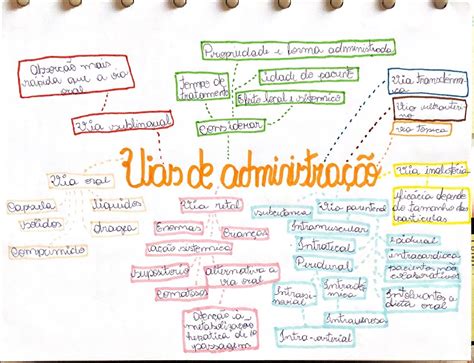 Propriedade e forma administrada
Absorção mais
rápida que a via
oral
Tempo de
tratamento
Idade do paciente
Efeito local e sistêmico
Considerar
Via sublingual
Via transdérmica
Via tópica
Vias de administração
Via oral
Capsula
líquidos
sólidos
drágea
Comprimido
Via retal
Enemas
Crianças
ação sistêmica
supositório
alternativa a
via oral
Atenção a
metabolização
hepática de 1º
passagem
Via parenteral
subcutânea
Intramuscular
Intratecal
Peridural
Intradérmica
Intravenosa
Intra-arterial
Via inalatória
eficácia depende
do tamanho das
partículas
Epidural
intracardíaca
pacientes não
colaborativos
Intolerantes a
dieta oral